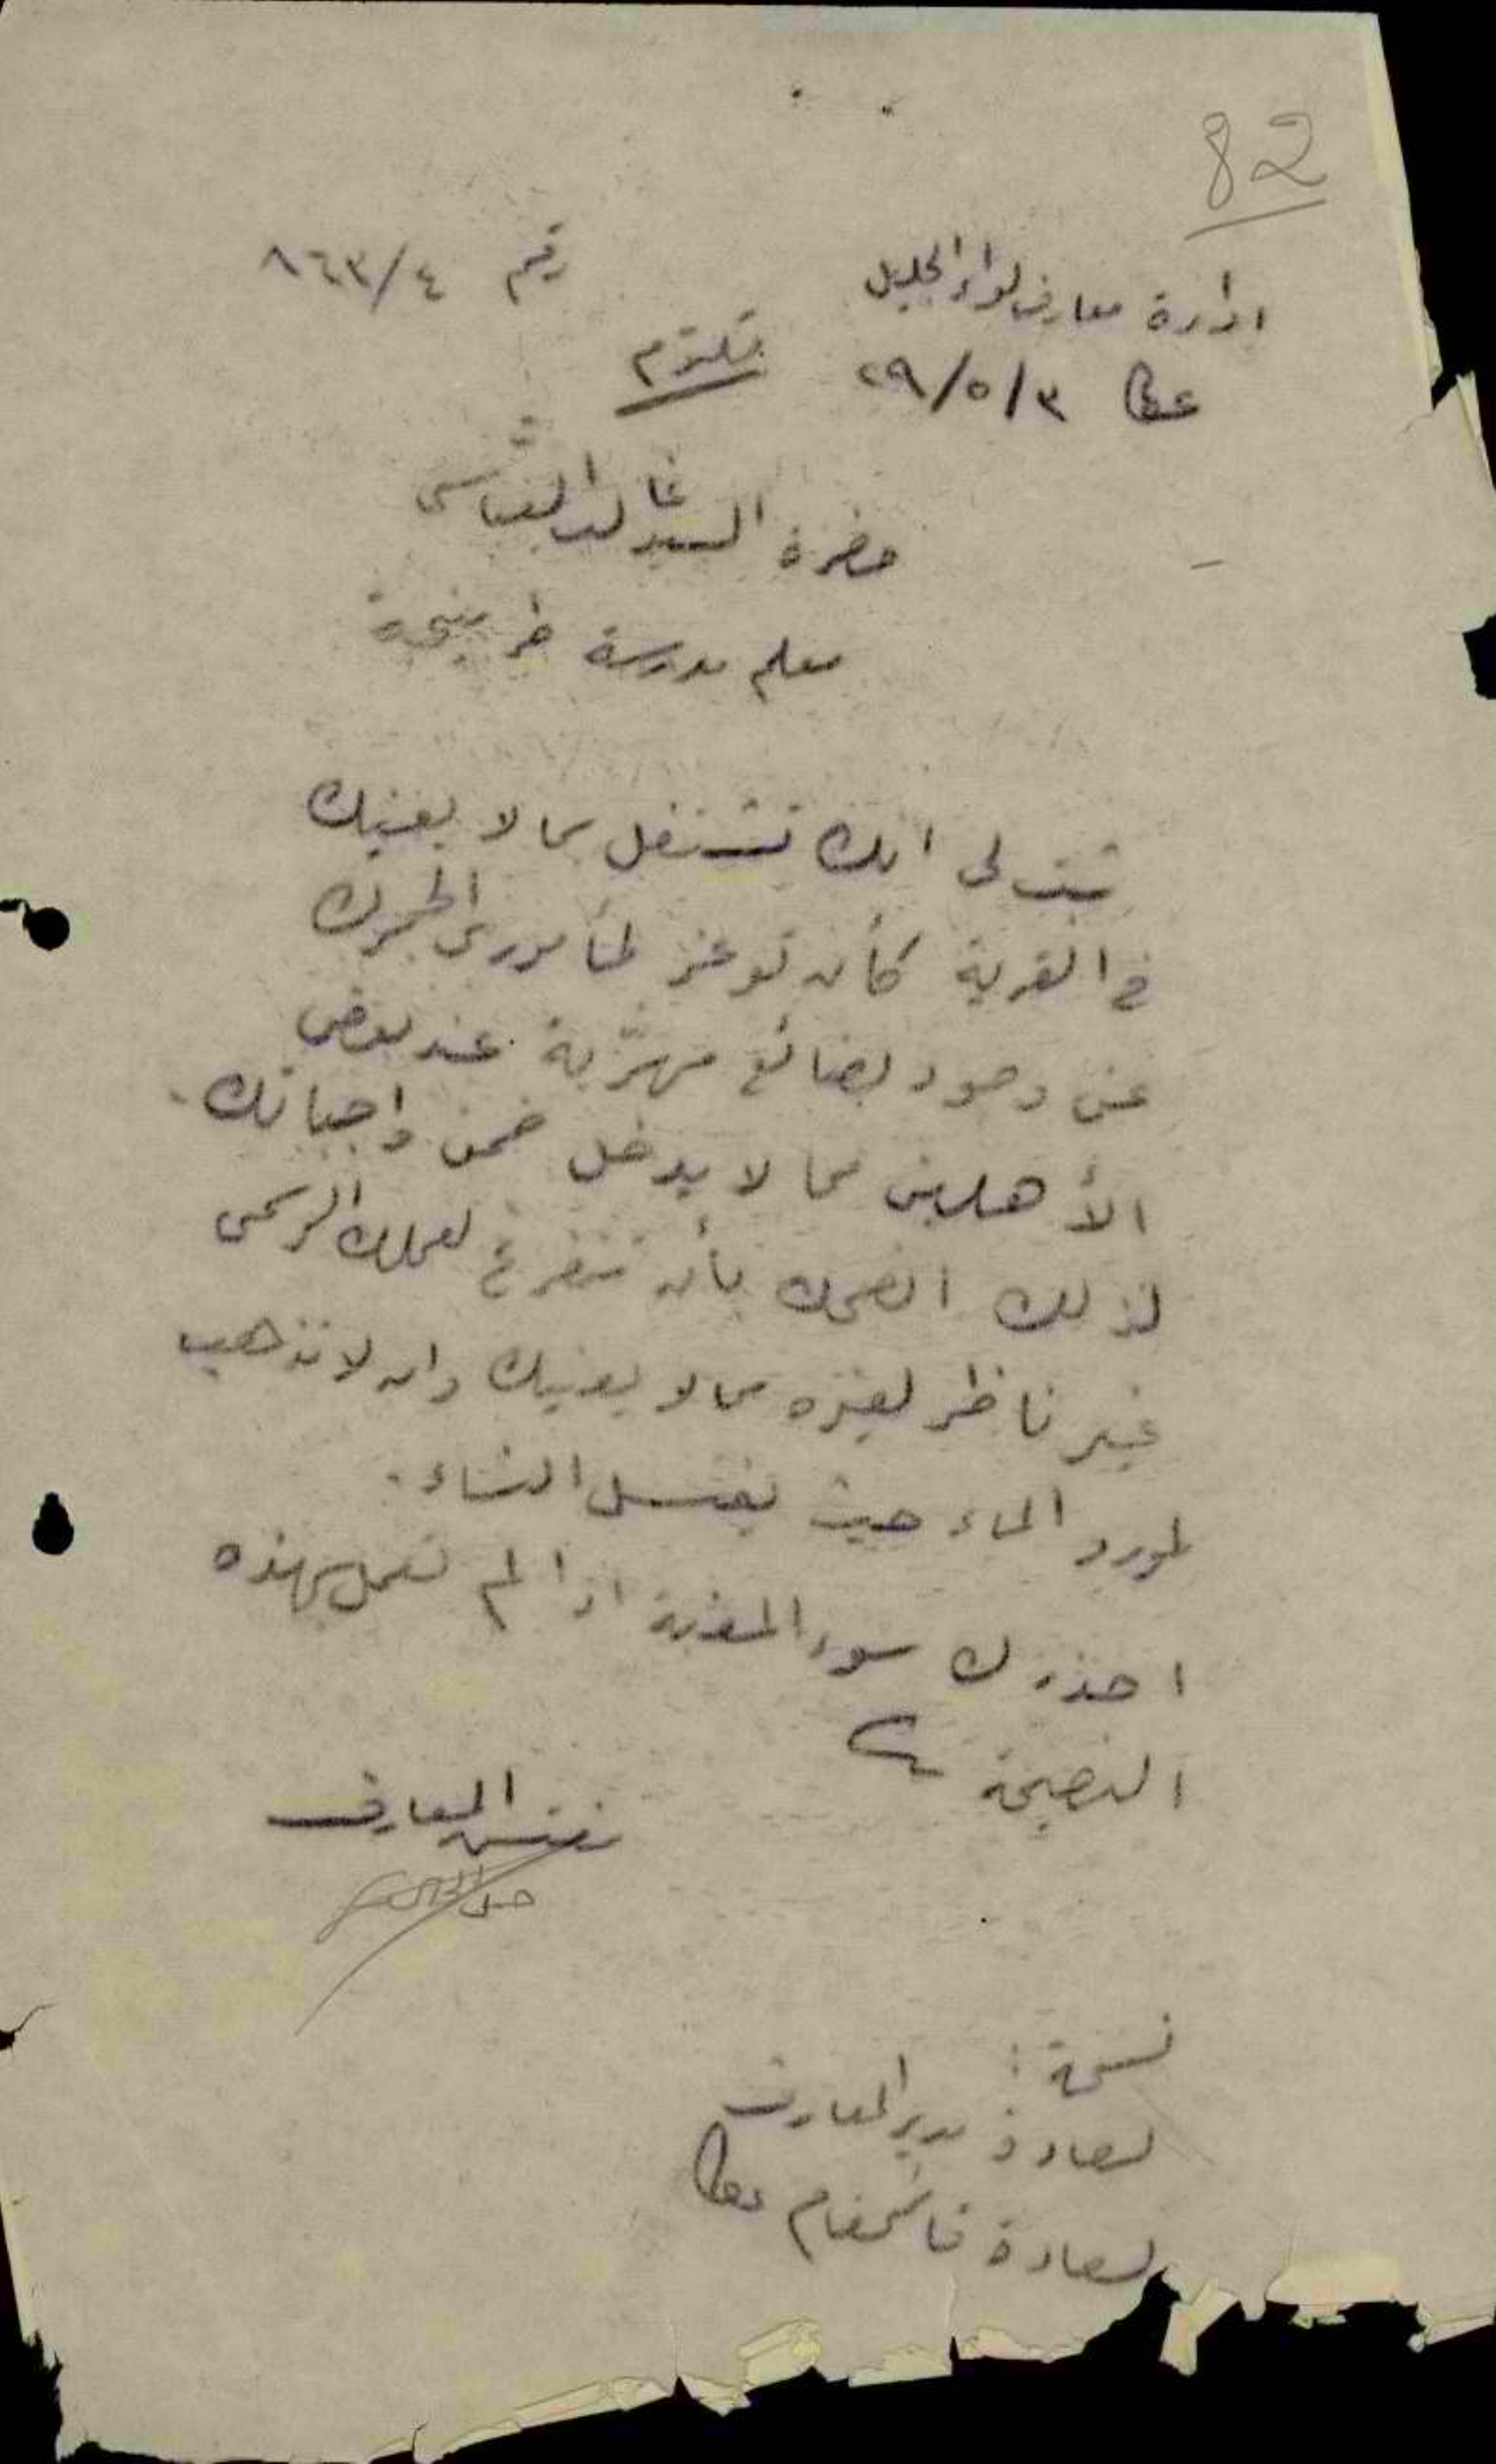 82
ادارة معارف لواء الجليل
رقم ٨٦٣/٤
عكا ٢٩/٥/٣
مكتوم
حضرة السيد خالد العباسي
معلم مدرسة طربيخة
ثبت لي انك تشتغل بما لا يعنيك
في القرية كأن توعز لمأموري الجمرك
عن وجود بضائع مهرّبة عند بعض
الأهلين مما لا يدخل ضمن واجباتك.
لذلك انصحك بأن تتفرغ لعملك الرسمي
غير ناظر لغيره مما لا يعنيك وان لا تذهب
لمورد الماء حيث يغتسل النساء.
احذرك سوء المغبة اذا لم تعمل بهذه
النصيحة
مفتش المعارف
نسخة:
لسعادة مدير المعارف
لسعادة قائمقام عكا